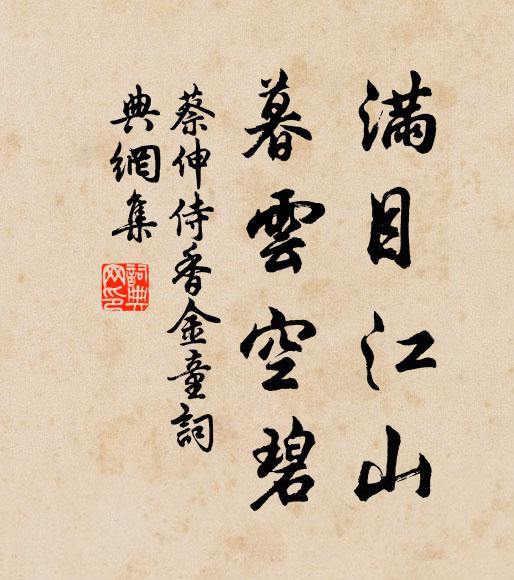 滿目江山
暮雲空碧
蔡伸侍香金童詞
典網集
詞典网印